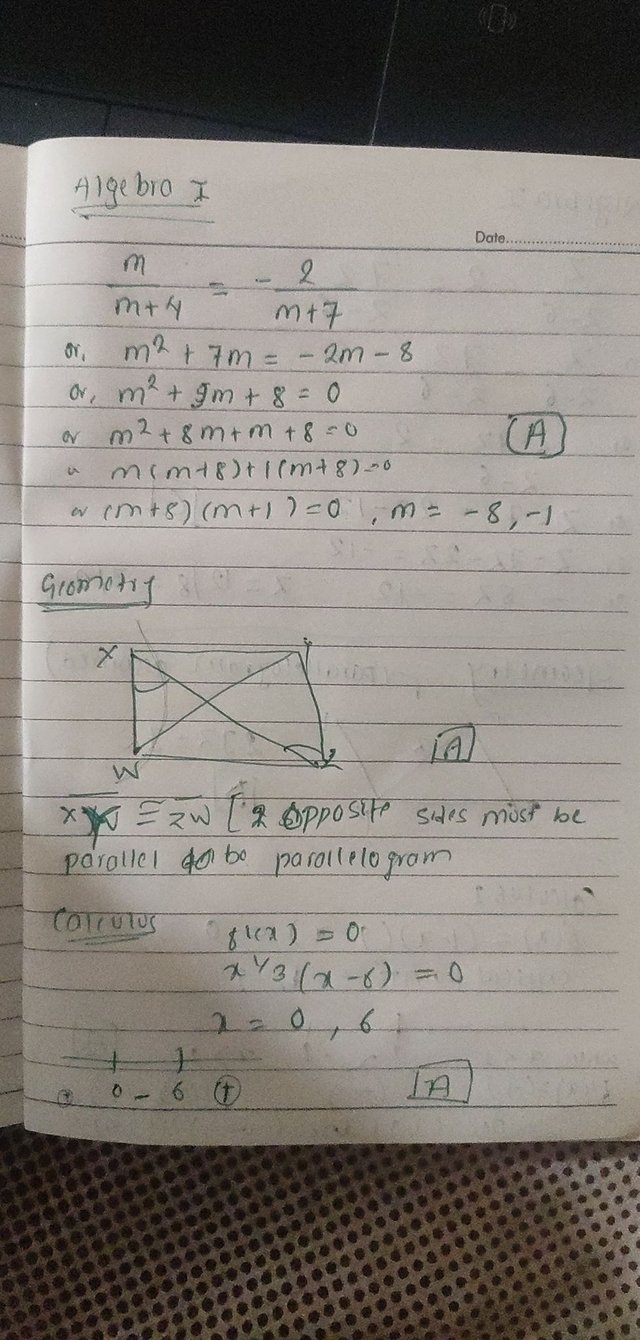 Algebra I
Date
m/m+4 = - 2/m+7
or, m² + 7m = - 2m - 8
or, m² + 9m + 8 = 0
or m² + 8m + m + 8 = 0
A
m(m+8)+1(m+8)=0
or (m+8)(m+1)=0, m = -8, -1
Geometry
X
W
A
≅ ZW [2 opposite sides must be
parallel to be parallelogram
Calculus
f'(x) = 0
x^1/3 (x-6) = 0
x = 0, 6
+ 0 - 6 +
A